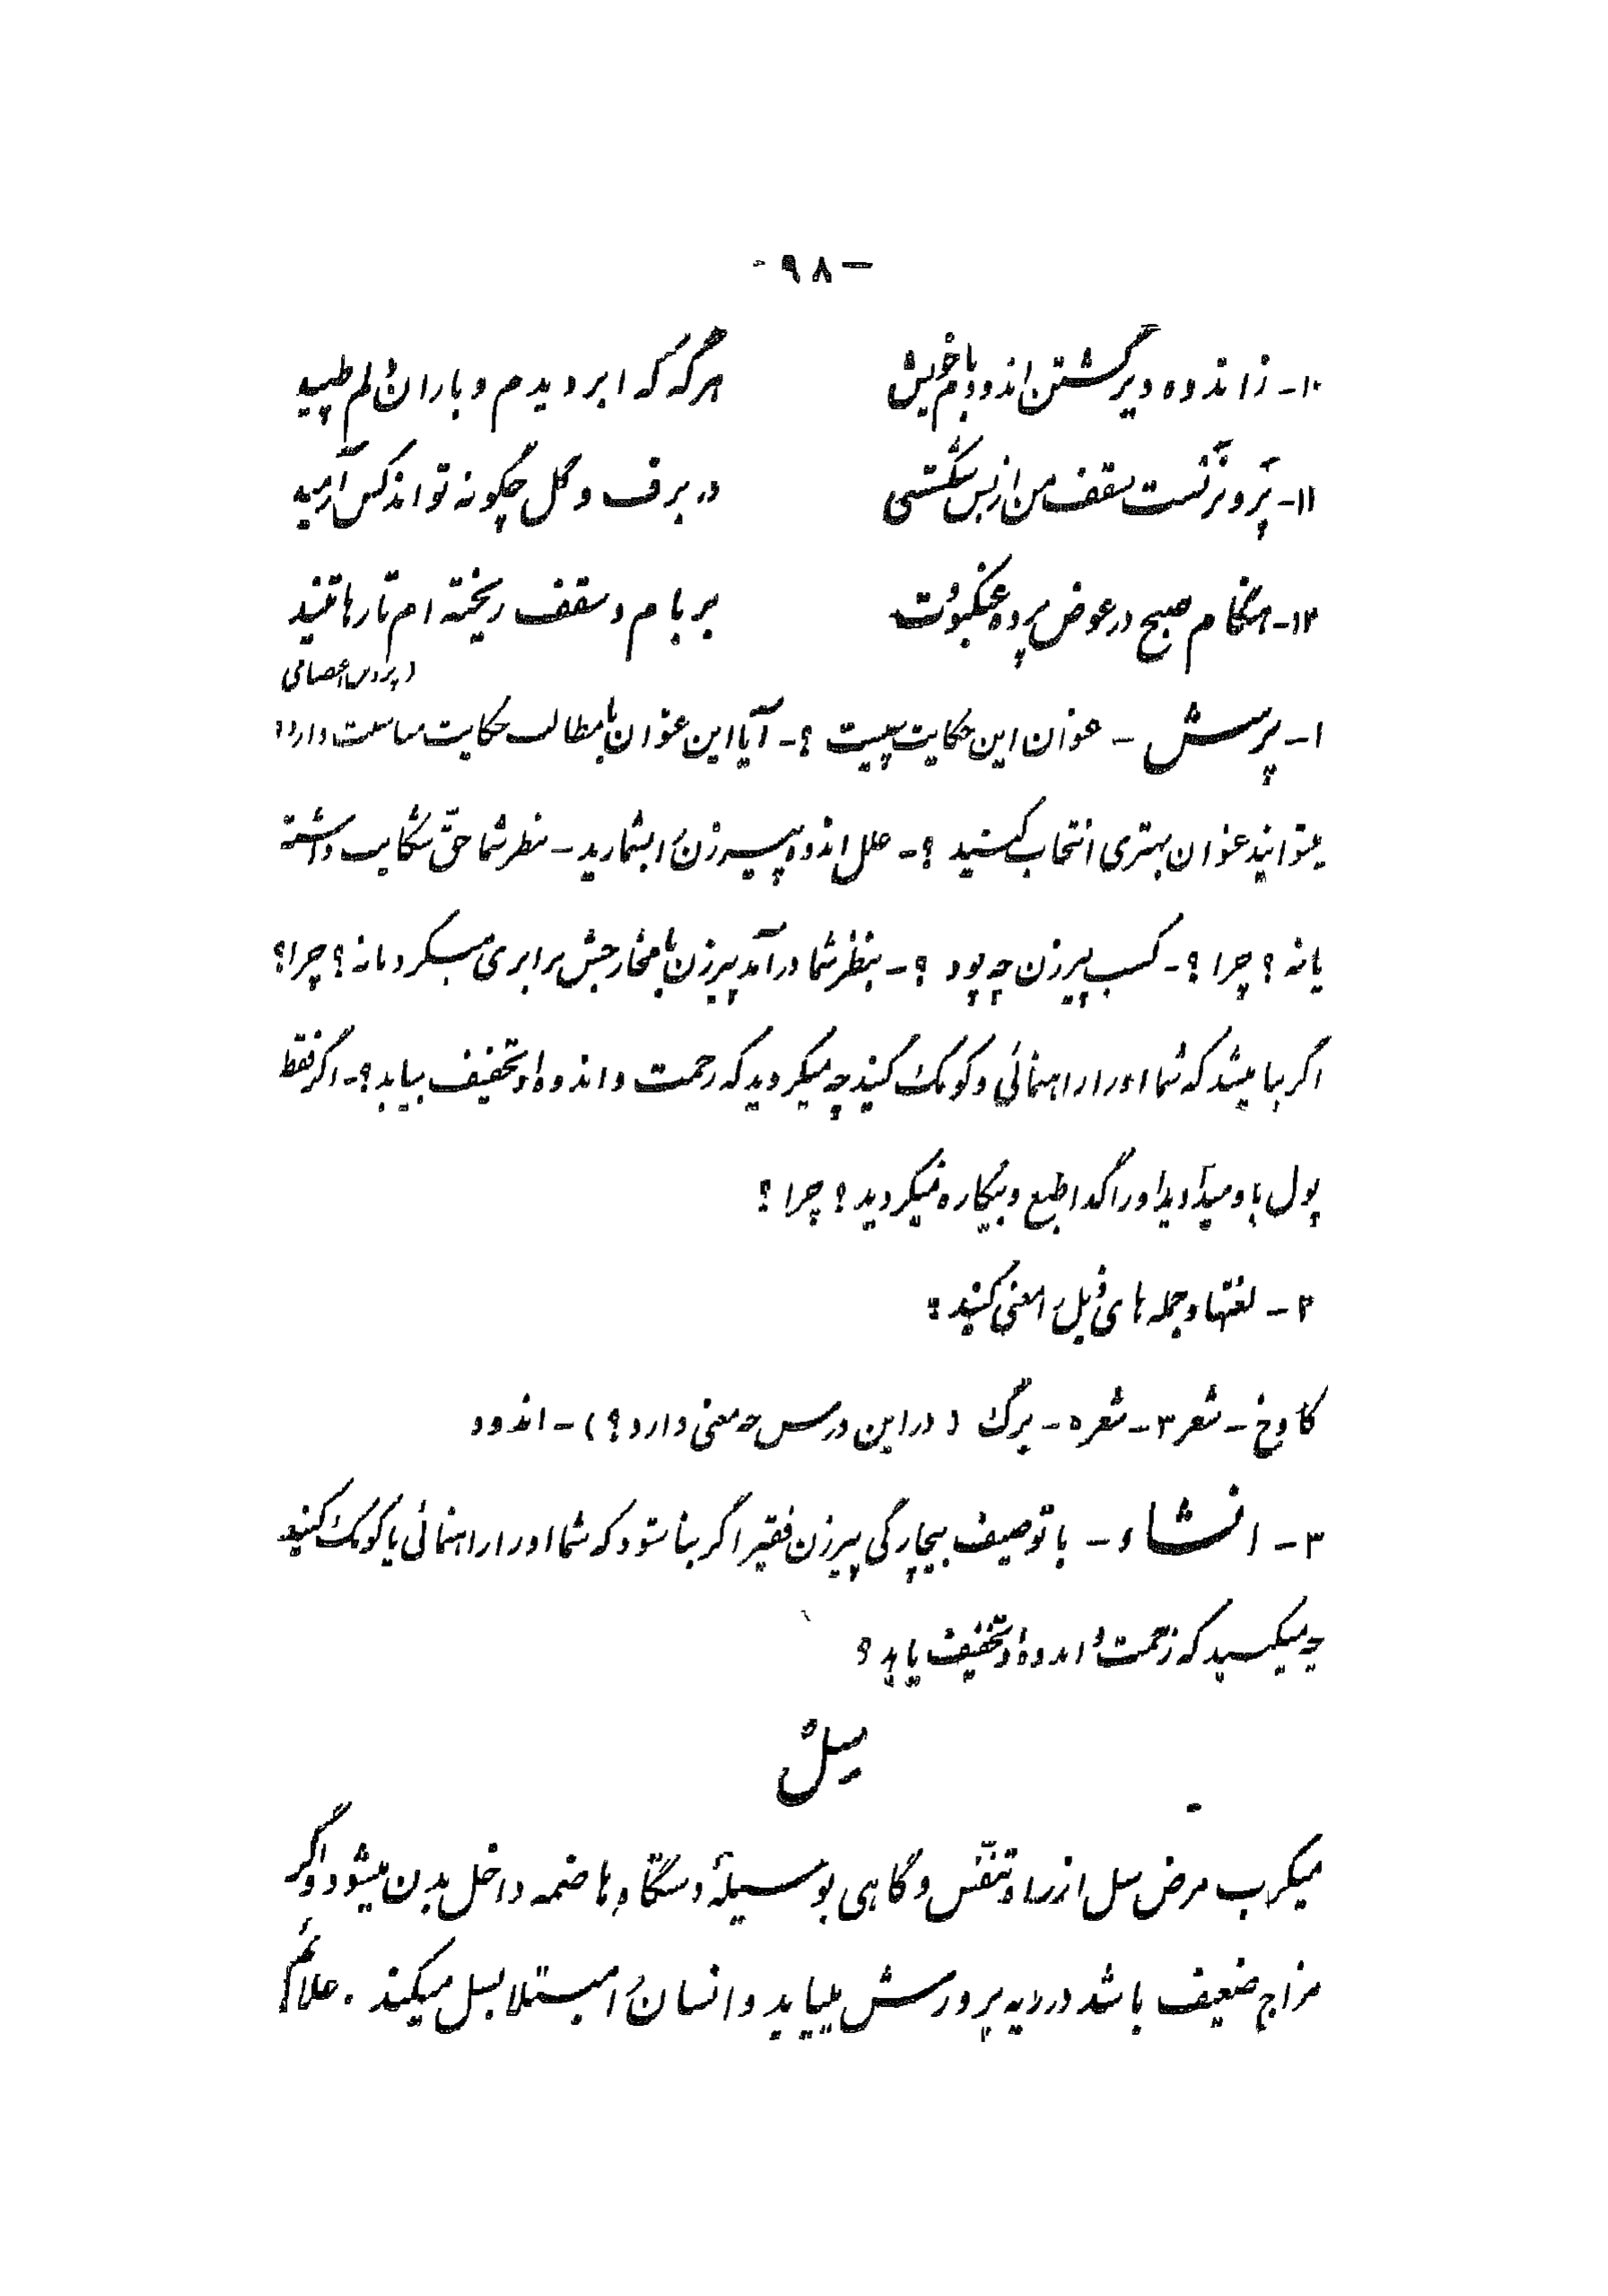 -۹۸-
۱۰- ز اندوه دیر گشتن اندود بام خویش هر گه که ابر دیدم و باران دلم طپید
۱۱- پرویزنست سقف من از بس شکستگی در برف و گل چگونه تواند کس آرمید
۱۲- هنگام صبح در عوض پرده عنکبوت بر بام و سقف ریخته ام تارها تنید
(پروین اعتصامی
۱- پرسش - عنوان این حکایت چیست ؟- آیا این عنوان با مطالب حکایت مناسبت دارد؟
میتوانید عنوان بهتری انتخاب کنید ؟- علل اندوه پیرزن را بشمارید - بنظر شما حقّ شکایت داشته
یا نه ؟ چرا ؟- کسب پیرزن چه بود ؟- بنظر شما درآمد پیرزن با مخارجش برابری میکرد یا نه ؟ چرا؟
اگر بنا میشد که شما او را راهنمائی و کومک کنید چه میکردید که زحمت و اندوه او تخفیف بیابد ؟- اگر فقط
پول باو میدادید او را گدا طبع و بیکاره نمیکردید ؟ چرا ؟
۲- لغتها و جمله های ذیل را معنی کنید :
کاوخ - شعر ۳- شعر ۵- برگ (در این درس چه معنی دارد ؟) - اندود
۳- انشاء - با توصیف بیچارگی پیرزن فقیر اگر بنا شود که شما او را راهنمائی یا کومک کنید
چه میکنید که زحمت و اندوه او تخفیف یابد ؟
سِل
میکرب مرض سل از راه تنفّس و گاهی بوسیلهٔ دستگاه هاضمه داخل بدن میشود و اگر
مزاج ضعیف باشد در ریه پرورش مییابد و انسان را مبتلا بسل میکند . علائم